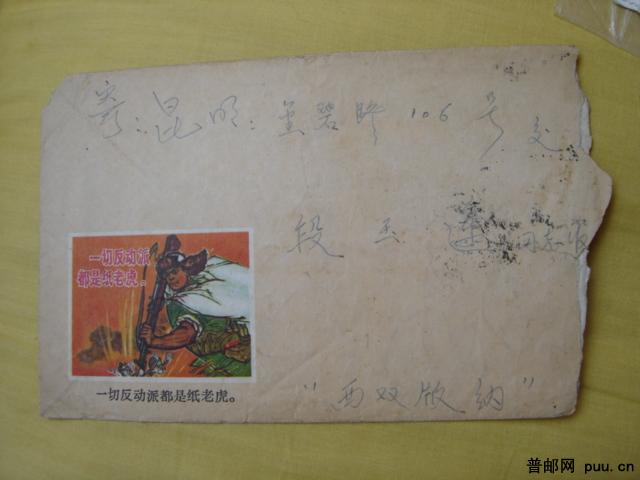 寄：昆明：金碧路 106 号 交
段玉莲 同志 收
一切反动派
都是纸老虎。
一切反动派都是纸老虎。
"西双版纳"
普邮网 puu.cn